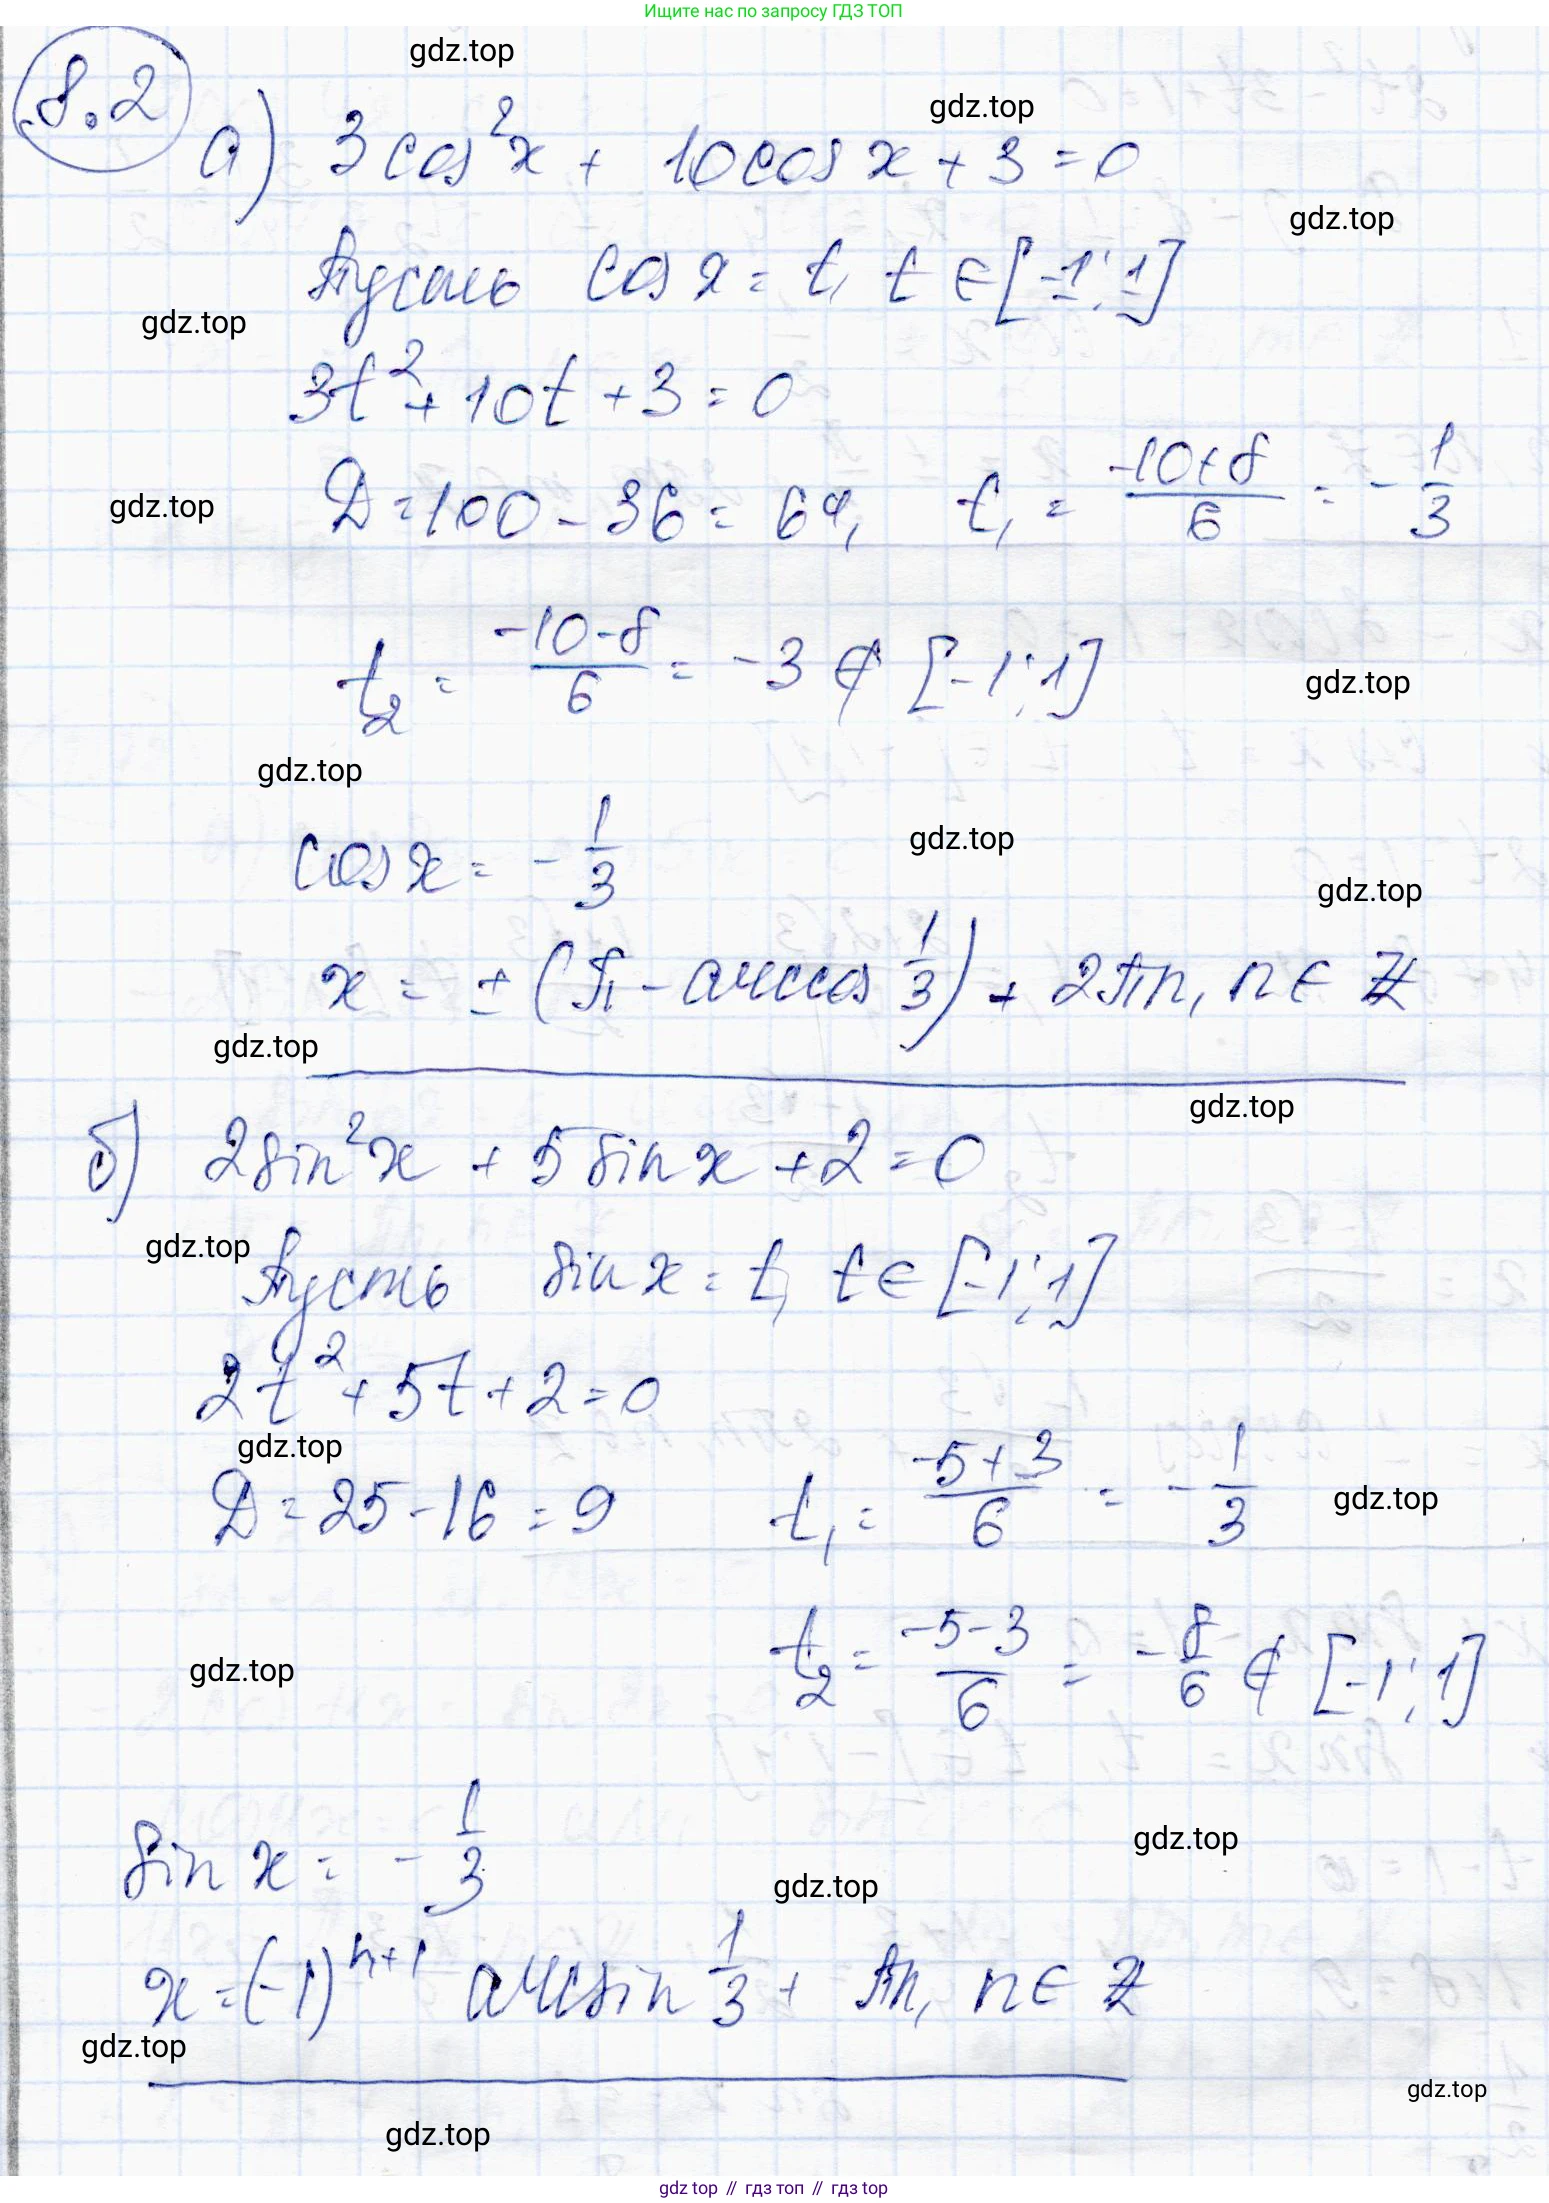 Ищите нас по запросу ГДЗ ТОП
gdz.top
8.2
gdz.top
а) 3cos²x + 10cos x + 3 = 0
gdz.top
Пусть cos x = t, t ∈ [-1; 1]
gdz.top
3t² + 10t + 3 = 0
gdz.top
D = 100 - 36 = 64, t₁ = (-10+8)/6 = -1/3
t₂ = (-10-8)/6 = -3 ∉ [-1; 1]
gdz.top
gdz.top
gdz.top
cos x = -1/3
gdz.top
x = ±(π - arccos 1/3) + 2πn, n ∈ Z
gdz.top
gdz.top
б) 2sin²x + 5sin x + 2 = 0
gdz.top
Пусть sin x = t, t ∈ [-1; 1]
2t² + 5t + 2 = 0
gdz.top
D = 25 - 16 = 9 t₁ = (-5+3)/6 = -1/3
gdz.top
t₂ = (-5-3)/6 = -8/6 ∉ [-1; 1]
gdz.top
gdz.top
sin x = -1/3
gdz.top
x = (-1)ⁿ⁺¹ arcsin 1/3 + πn, n ∈ Z
gdz.top
gdz.top
gdz.top
gdz top // гдз топ // гдз top